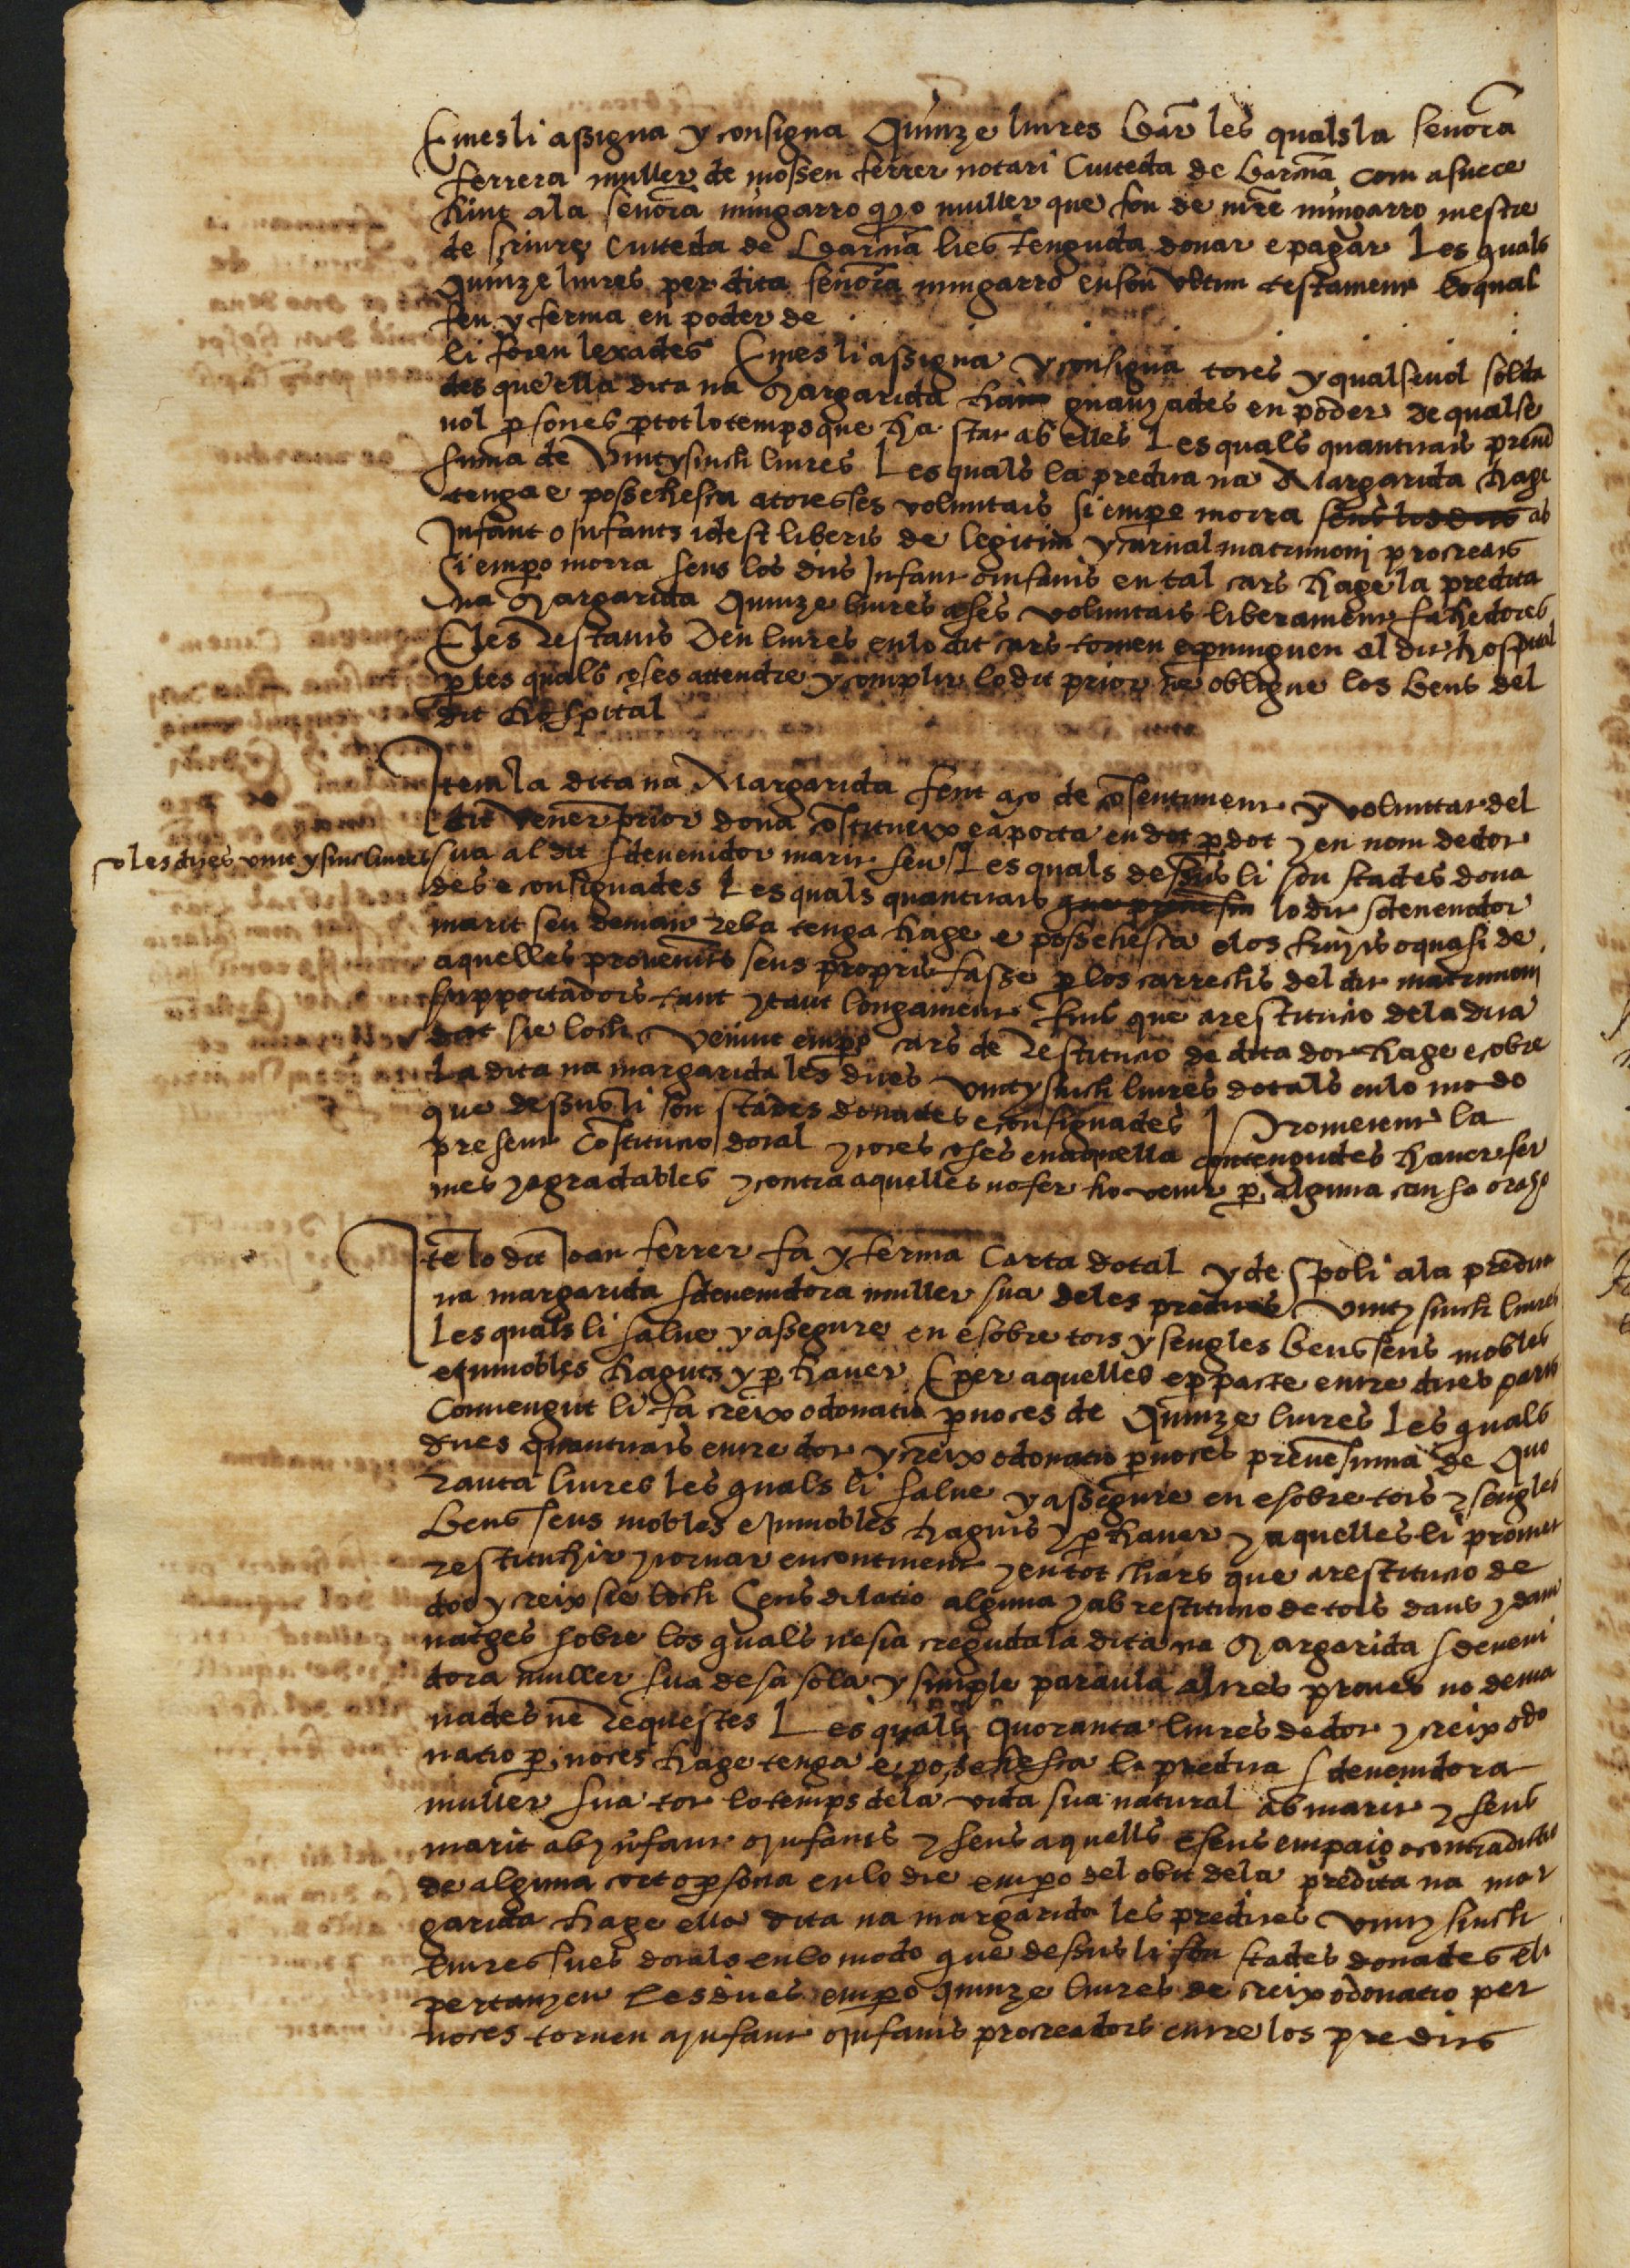 E mes li assigna y consigna Quinze liures Bar les quals la senora
ferrera muller de mossen ferrer notari Ciuteda de Barna com a succe
hint a la senora mingarro qo muller que fou de mre mingarro mestre
de scriure Ciuteda de Barna li es tenguda donar e pagar Les quals
Quinze liures per dita senora mingarro en son vltim testament lo qual
feu y ferma en poder de
li foren lexades E mes li assigna y consigna totes y qualseuol solda
des que ella dita na Margarida ha guanyades en poder de qualse
uol psones p tot lo temps que ha stat ab elles Les quals quantitats prenen
suma de Vint y sinch liures Les quals la predita na Margarida hage
tenga e possehesca a totes ses voluntats si empo morra sens los dits ab
Infant o infants id est liberis de legitim y carnal matrimoni procreats
Si empo morra sens los dits Infant o infants en tal cars hage la predita
na Margarida Quinze liures a ses voluntats liberament fahedores
E les restants Deu liures en lo dit cars tornen e pninguen al dit hospital
p les quals coses attendre y complir lo dit prior ne obligue los bens del
dit hospital
Item la dita na Margarida fent aço de cosentiment y voluntat del
dit Venerᵉ prior dona costitueix e aporta en dot p dot y en nom de dot
v les dites vint y sinc liures
sua al dit sdeuenidor marit seu Les quals dessus li son stades dona
des e consignades Les quals quantitats que prenen suma lo dit sdeuenidor
marit seu demant reba tenga hage e possehesca e los fruyts o quasi de
aquelles prouenints seus propris fasse p los carrechs del dit matrimoni
supportadors tant y tant longament fins que a restitucio de la dita
dot sie loch Venint empo cars de restitucio de dita dot hage e cobre
La dita na margarida les dites vint y sinch liures dotals en lo modo
que dessus li son stades donades e consignades Prometent la
present costitucio dotal y totes coses en aquella contengudes hauer fer
mes y agradables y contra aquelles no fer ho venir p alguna causa o raho
Ite lo dit Joan ferrer fa y ferma Carta dotal y de spoli a la predita
na margarida sdeuenidora muller sua de les predites vint y sinch liures
Les quals li salue y assegure en e sobre tots y sengles bens seus mobles
e inmobles haguts y p hauer E per aquelles e p pacte entre dites parts
Conuengut li fa creix o donatio p noces de Quinze liures Les quals
dites quantitats entre dot y creix o donatio p noces prene suma de Quo
ranta liures les quals li salue y assegure en e sobre tots y sengles
bens seus mobles e Inmobles haguts y p hauer y aquelles li promet
restituhir y tornar encontinent y en tot chars que a restitucio de
dot y creix sie loch Sens dilatio alguna y ab restitucio de tots dans y dam
natges sobre los quals ne sia creguda la dita na Margarida sdeueni
dora muller sua de sa sola y simple paraula altres proues no dema
nades ne requestes Les quals Quoranta liures de dot y creix o do
natio p noces hage tenga e possehesca la predita sdeuenidora
muller sua tot lo temps de la vida sua natural ab marit y sens
marit ab y infant o infants y sens aquells e sens empaig o contradictio
de alguna cort o psona en lo die empo del obit de la predita na mar
garida hage ella dita na margarida les predites vint y sinch
liures sues dotals en lo modo que dessus li son stades donades e li
pertanyen les dites empo quinze liures de creix o donatio per
noces tornen a infant o infants procreadors entre los predits